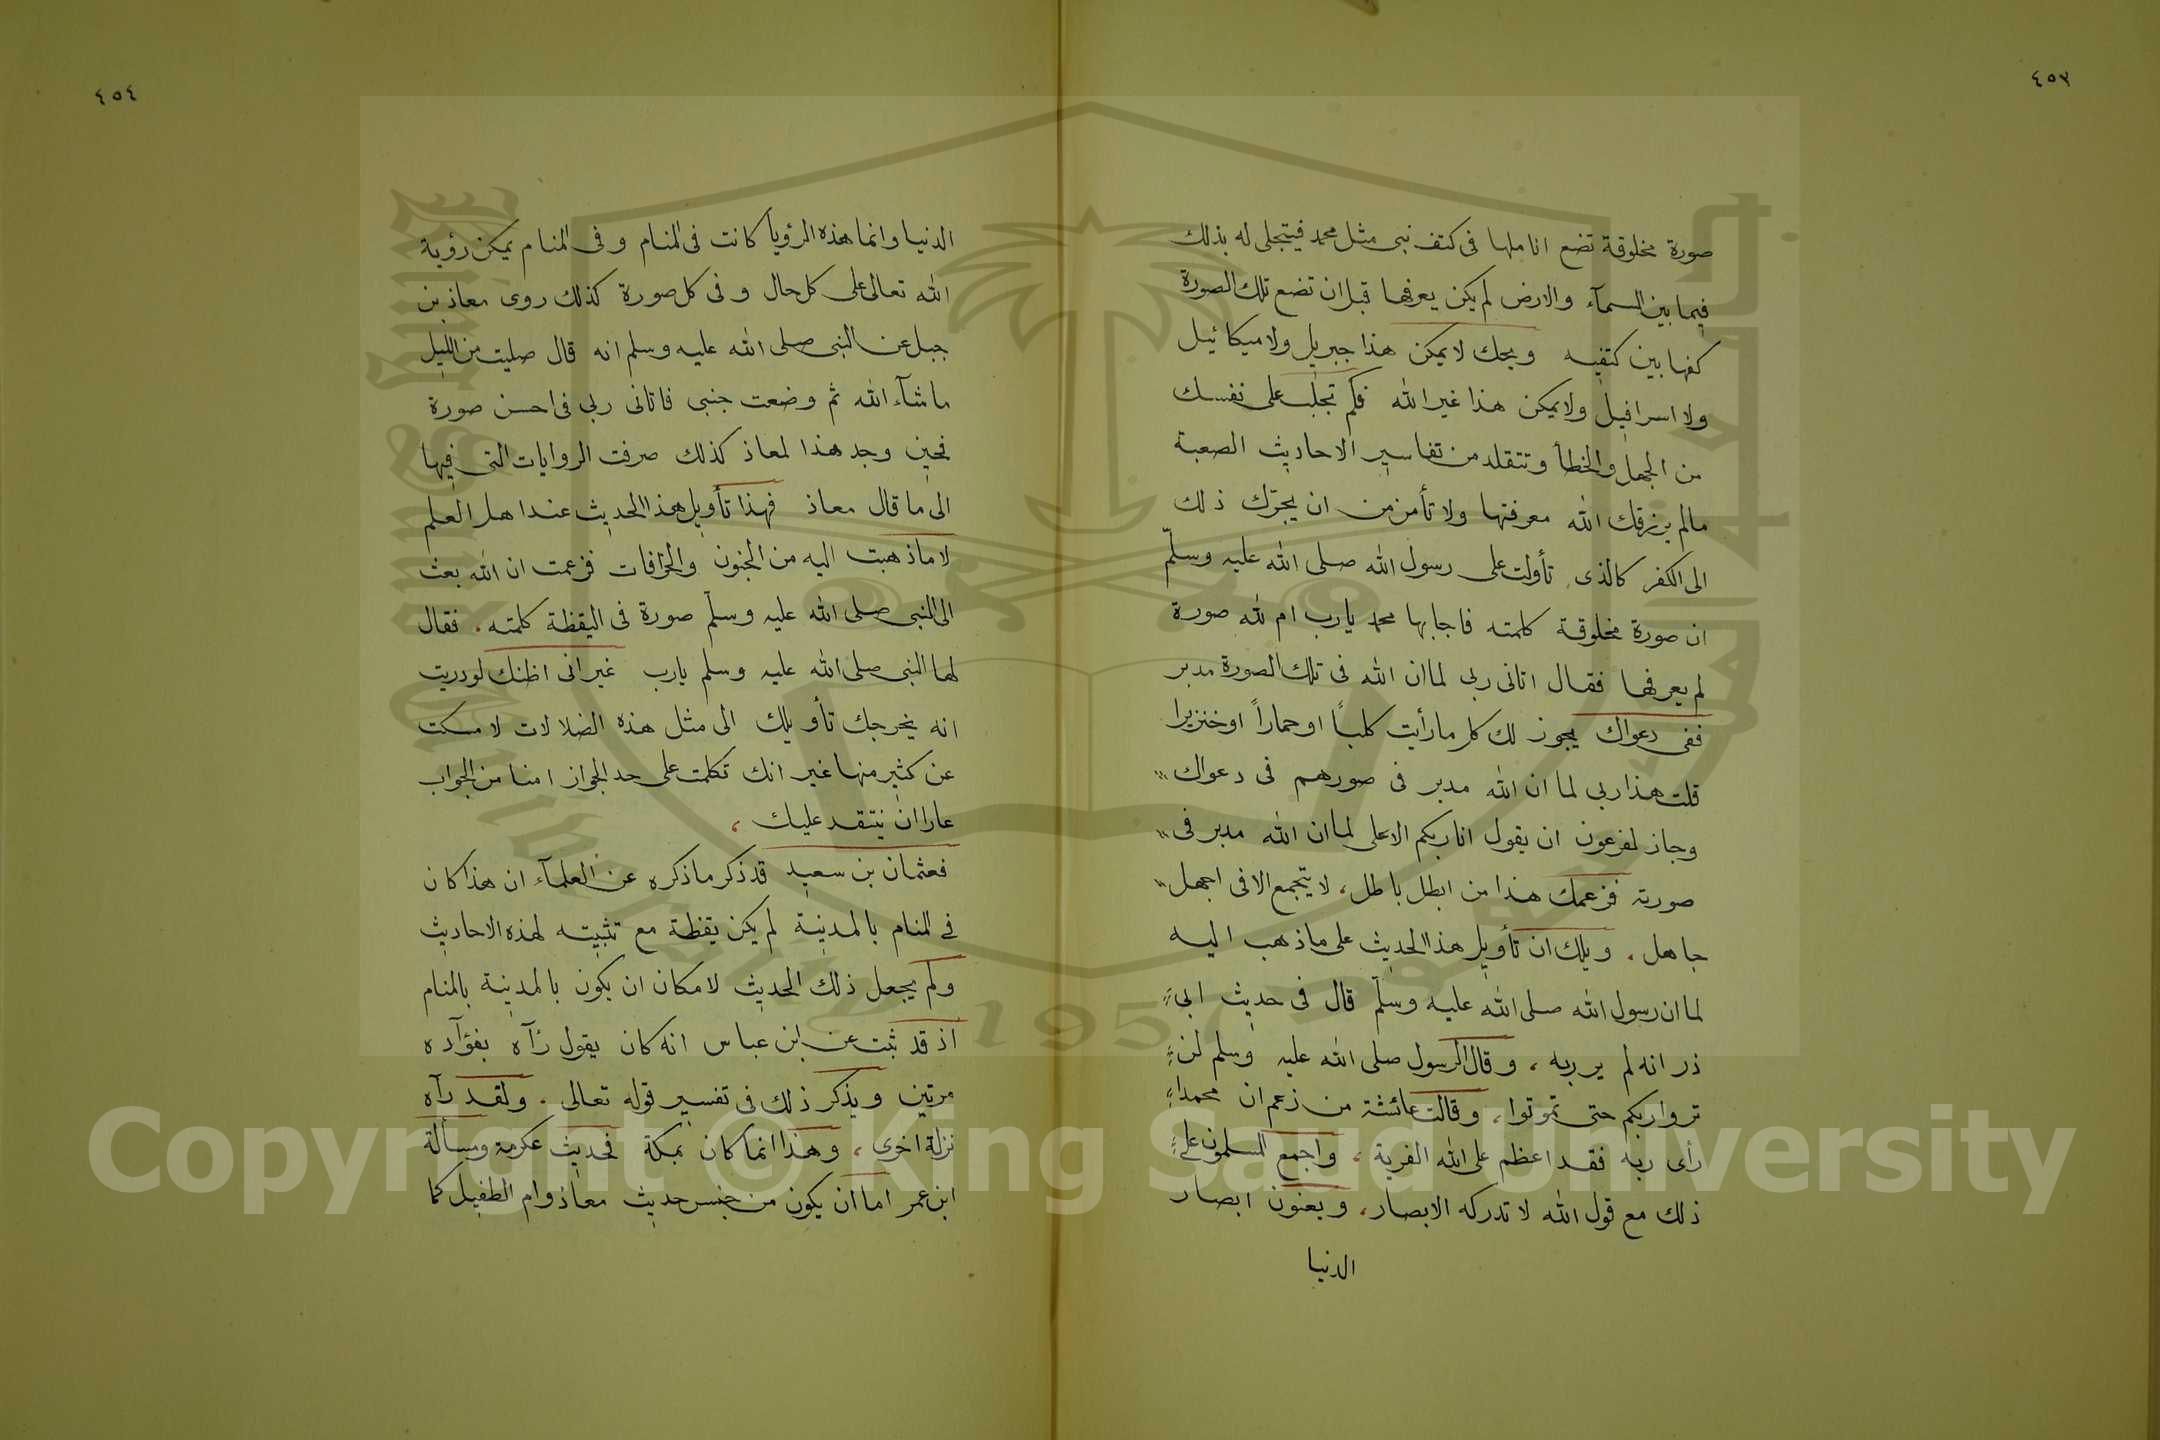 ٤٥٣
صورة مخلوقة تضع اناملها فى كتف نبى مثل محمد فيتجلى له بذلك
فيما بين السمآء والارض لم يكن يعرفها قبل ان تضع تلك الصورة
كفها بين كتفيه ويحك لا يمكن هذا جبريل ولا ميكائيل
ولا اسرافيل ولا يمكن هذا غير الله فكم تجلب على نفسك
من الجهل والخطأ وتتقلد من تفاسير الاحاديث الصعبة
مالم يرزقك الله معرفتها ولا تأمن من ان يجرّك ذلك
الى الكفر كالذى تأولت على رسول الله صلى الله عليه وسلّم
ان صورة مخلوقة كلمته فاجابها محمد يارب ام لله صورة
لم يعرفها فقال اتانى ربى لما ان الله فى تلك الصورة مدبر
ففى دعواك يجوز لك كل ما رأيت كلباً او حماراً او خنزيرا
قلت هذا ربى لما ان الله مدبر فى صورهم فى دعواك
وجاز لفرعون ان يقول انا ربكم الاعلى لما ان الله مدبر فى
صورته فزعمك هذا من ابطل باطل، لا يتجمع الا فى اجهل
جاهل . ويلك ان تأويل هذا الحديث على ما ذهب اليه
لما ان رسول الله صلى الله عليه وسلّم قال فى حديث ابى
ذر انه لم ير ربه ، وقال الرسول صلى الله عليه وسلم لن
تروا ربكم حتى تموتوا، وقالت عائشة من زعم ان محمدا
رأى ربه فقد اعظم على الله الفرية ، واجمع المسلمون على
ذلك مع قول الله لا تدركه الابصار، ويعنون ابصار
الدنيا
٤٥٤
الدنيا وانما هذه الرؤيا كانت فى المنام وفى المنام يمكن رؤية
الله تعالى على كل حال وفى كل صورة كذلك روى معاذ بن
جبل عن النبى صلى الله عليه وسلم انه قال صليت من الليل
ماشآء الله ثم وضعت جنبى فاتانى ربى فى احسن صورة
فحين وجد هذا لمعاذ كذلك صرفت الروايات التى فيها
الى ما قال معاذ فهذا تأويل هذا الحديث عند اهل العلم
لا ما ذهبت اليه من الجنون والخرافات فزعمت ان الله بعث
الى النبى صلى الله عليه وسلّم صورة فى اليقظة كلمته . فقال
لها النبى صلى الله عليه وسلم يارب غير انى اظنك لو دريت
انه يخرجك تأويلك الى مثل هذه الضلالات لامسكت
عن كثير منها غير انك تكلمت على حد الجواز امنا من الجواب
عارا ان ينتقد عليك ،
فعثمان بن سعيد قد ذكر ما ذكره عن العلمآء ان هذا كان
فى المنام بالمدينة لم يكن يقظة مع تثبيته لهذه الاحاديث
ولم يجعل ذلك الحديث لامكان ان يكون بالمدينة بالمنام
اذ قد ثبت عن ابن عباس انه كان يقول رآه بفؤآده
مرتين ويذكر ذلك فى تفسير قوله تعالى . ولقد رآه
نزلة اخرى ، وهذا انما كان بمكة فحديث عكرمة ومسألة
ابن عمر اما ان يكون من جنس حديث معاذ وام الطفيل كما
Copyright © King Saud University
1957